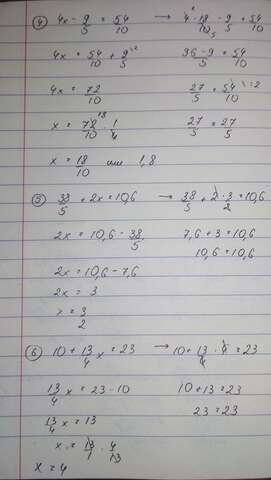 ④ 4x - 9/5 = 54/10 → 4·18/10 - 9/5 = 54/10
4x = 54/10 + 9/5 36-9/5 = 54/10
4x = 72/10 27/5 = 54/10 :2
x = 72/10 · 1/4 27/5 = 27/5
x = 18/10 или 1,8
⑤ 38/5 + 2x = 10,6 → 38/5 + 2·3/2 = 10,6
2x = 10,6 - 38/5 7,6 + 3 = 10,6
2x = 10,6 - 7,6 10,6 = 10,6
2x = 3
x = 3/2
⑥ 10 + 13/4 x = 23 → 10 + 13/4 · 4 = 23
13/4 x = 23 - 10 10 + 13 = 23
13/4 x = 13 23 = 23
x = 13/1 · 4/13
x = 4